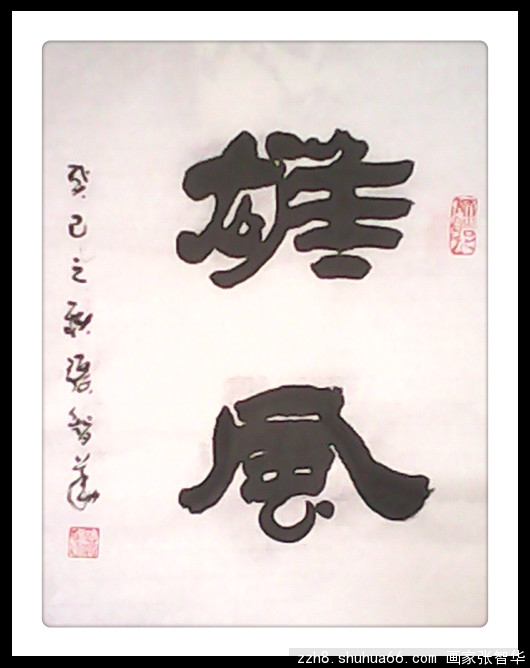 雄風
癸巳之秋張智華
zzh8.shuhua66.com 画家张智华